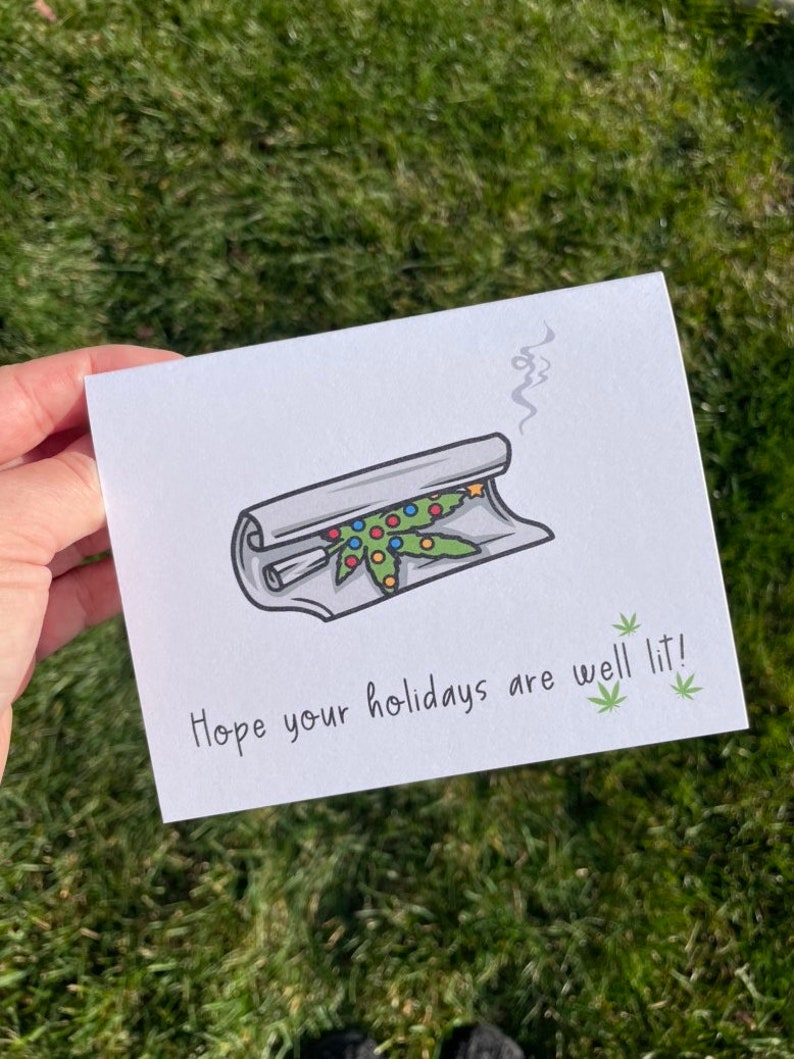 Hope your holidays are well lit!